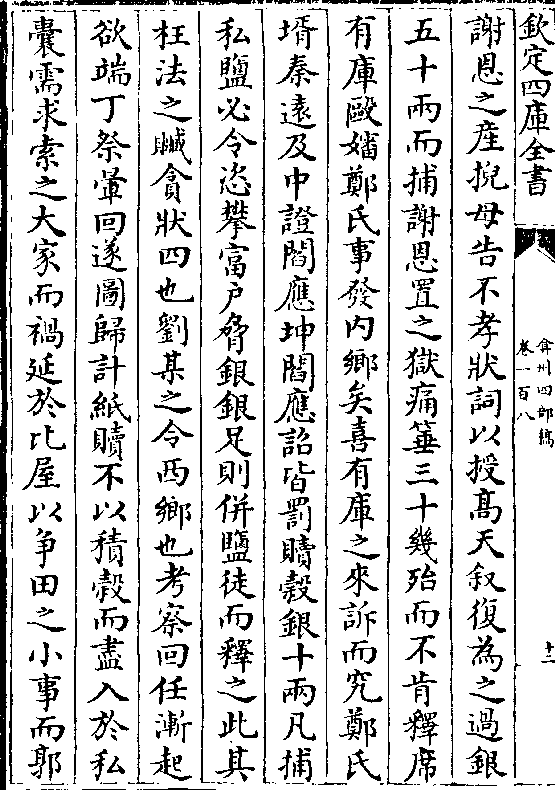 欽定四庫全書
弇州四部稿
卷一百八
十二
謝恩之産挽母告不孝狀詞以授髙天叙復為之過銀
五十兩而捕謝恩置之獄痛箠三十幾殆而不肯釋席
有庫毆嬸鄭氏事發内鄉矣喜有庫之來訴而究鄭氏
壻秦遠及中證閻應坤閻應詔皆罰贖榖銀十兩凡捕
私鹽必令恣攀富戸脅銀銀足則併鹽徒而釋之此其
枉法之贓貪狀四也劉某之令西鄉也考察回任漸起
欲端丁祭暈回遂圖歸計紙贖不以積榖而盡入於私
囊需求索之大家而禍延於比屋以争田之小事而郭